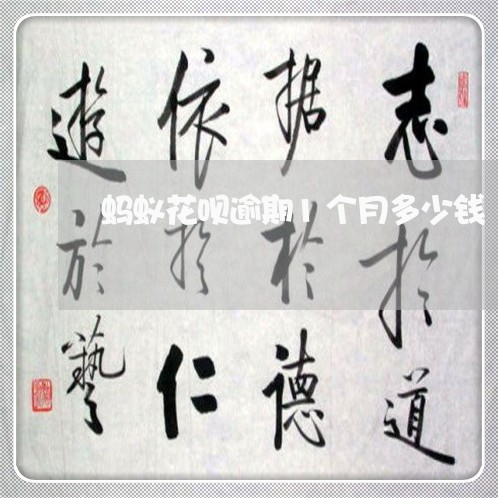 志於道
据於德
依於仁
遊於藝
蚂蚁花呗逾期1个月多少钱